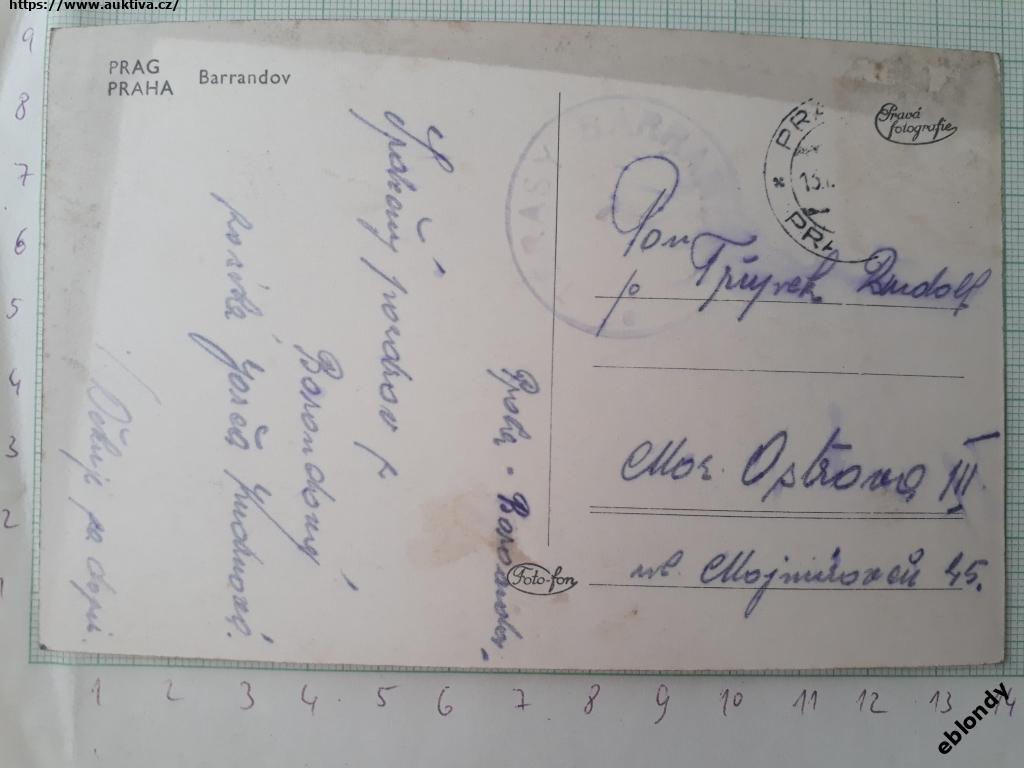 https://www.auktiva.cz/
PRAG
PRAHA
Barrandov
Pravá
fotografie
TERASY BARRAN
PRA
13.
PRA
Pan
p.
Rudolf
Mor. Ostrava III
ul. Mojmírovců 45.
Foto-fon
Praha - Barrandov.
Srdečný pozdrav z
Barrandovy
posílá
Děkuji za dopis.
9
8
7
6
5
4
3
2
1
1 2 3 4 5 6 7 8 9 10 11 12 13 14
eblondy